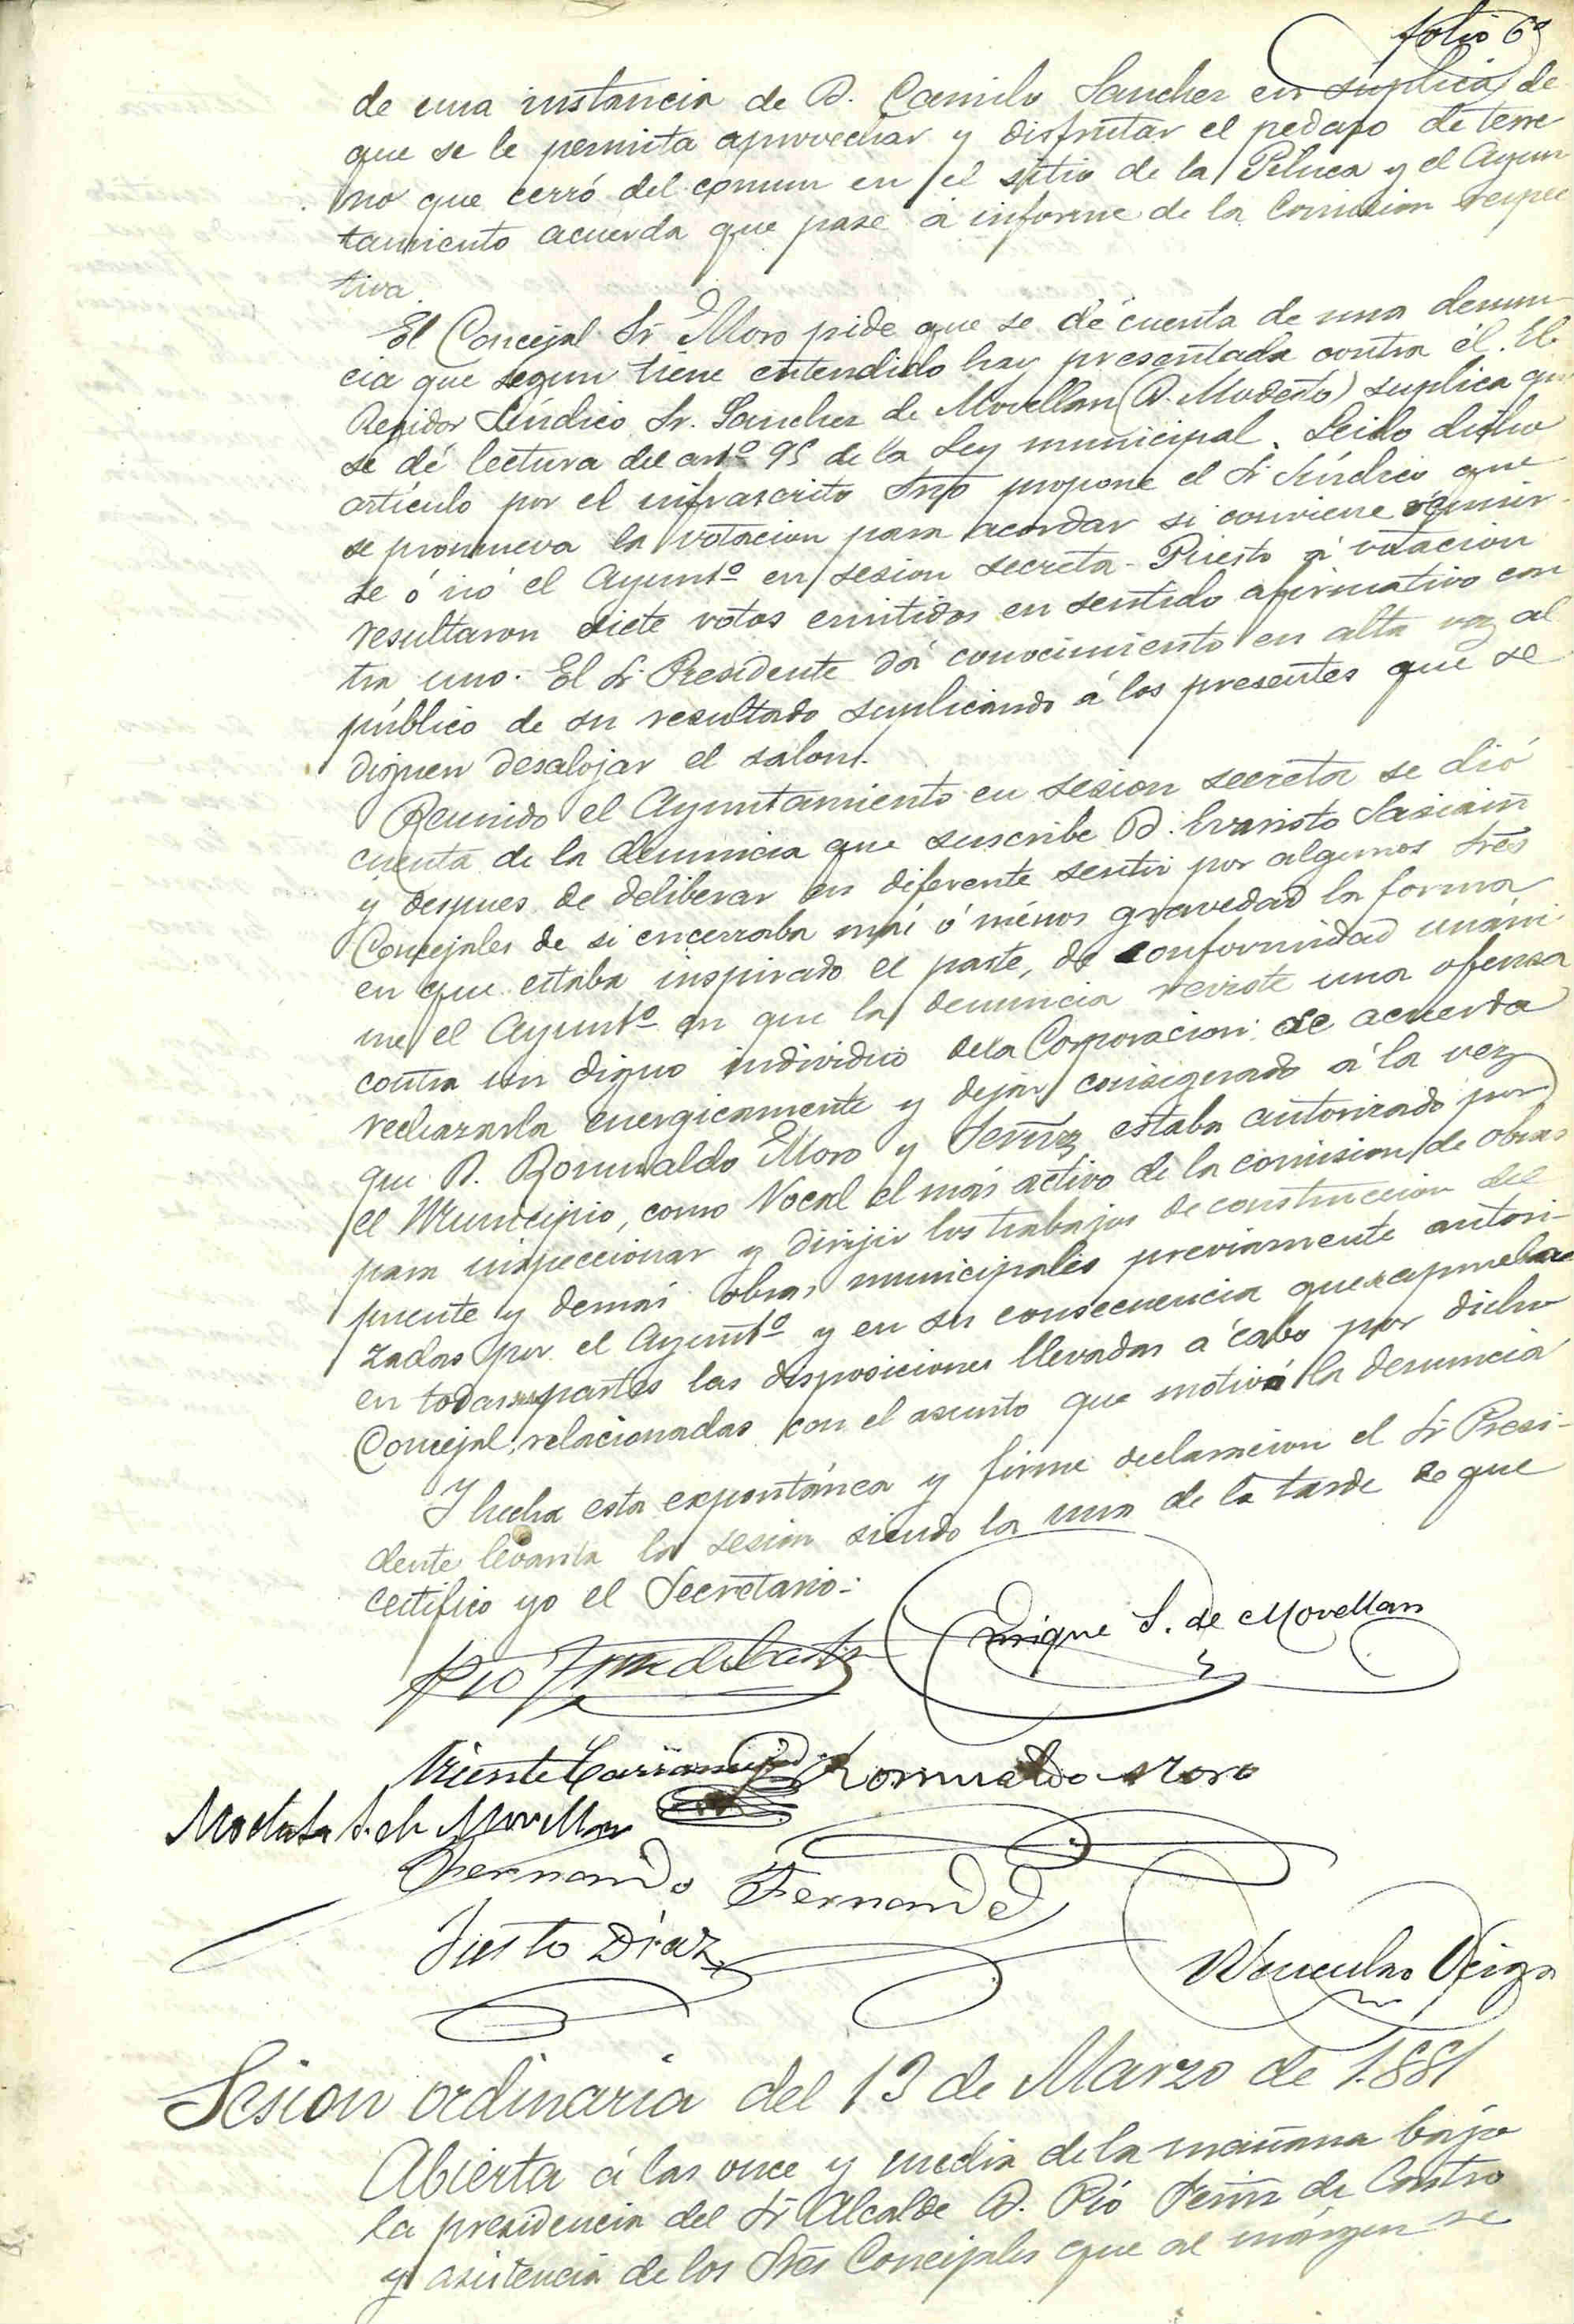 folio 6º
de una instancia de D. Camilo Sanchez en suplica de
que se le permita aprovechar y disfrutar el pedazo de terre
no que cerró del comun en el sitio de la Peluca y el Ayun
tamiento acuerda que pase á informe de la Comision respec
tiva
El Concejal Sr. Moro pide que se dé cuenta de una denun
cia que segun tiene entendido hay presentada contra él. El
Regidor Síndico Sr. Sanchez de Movellan (D. Modesto) suplica que
se dé lectura del artº 95 de la Ley municipal. Leido dicho
artículo por el infrascrito Srio propone el Sr. Síndico que
se promueva la votacion para acordar si conviene reunir
se ó nó el Ayuntº en sesion secreta - Puesto á votacion
resultaron siete votos emitidos en sentido afirmativo con
tra uno. El Sr. Presidente dá conocimiento en alta voz al
público de su resultado suplicando á los presentes que se
dignen desalojar el salon.
Reunido el Ayuntamiento en sesion secreta se dió
cuenta de la denuncia que suscribe D. Evaristo Sasiain
y despues de deliberar en diferente sentir por algunos Sres
Concejales de si encerraba más ó ménos gravedad la forma
en que estaba inspirado el parte, de conformidad unáni
me el Ayuntº en que la denuncia reviste una ofensa
contra un digno individuo de la Corporacion: se acuerda
rechazarla energicamente y dejar consignado á la vez
que D. Romualdo Moro y Fernz estaba autorizado por
el Municipio, como Vocal el más activo de la comision de obras
para inspeccionar y dirijir los trabajos de construccion del
puente y demás obras municipales previamente autori-
zadas por el Ayuntº y en su consecuencia que se aprueban
en todas sus partes las disposiciones llevadas á cabo por dicho
Concejal, relacionadas con el asunto que motivó la denuncia
Y hecha esta expontánea y firme declaracion el Sr. Presi-
dente levanta la sesion siendo la una de la tarde de que
certifico yo el Secretario.-
Pio Fernz de Castro
Enrique S. de Movellan
Vicente
Romualdo Moro
Modesto S. de Movellan
Fernando Fernandez
Justo Diaz
Wenceslao Veiga
Sesion ordinaria del 13 de Marzo de 1.881
Abierta á las once y media de la mañana bajo
la presidencia del Sr. Alcalde D. Pió Fernz de Castro
y asistencia de los Sres Concejales que al márgen se